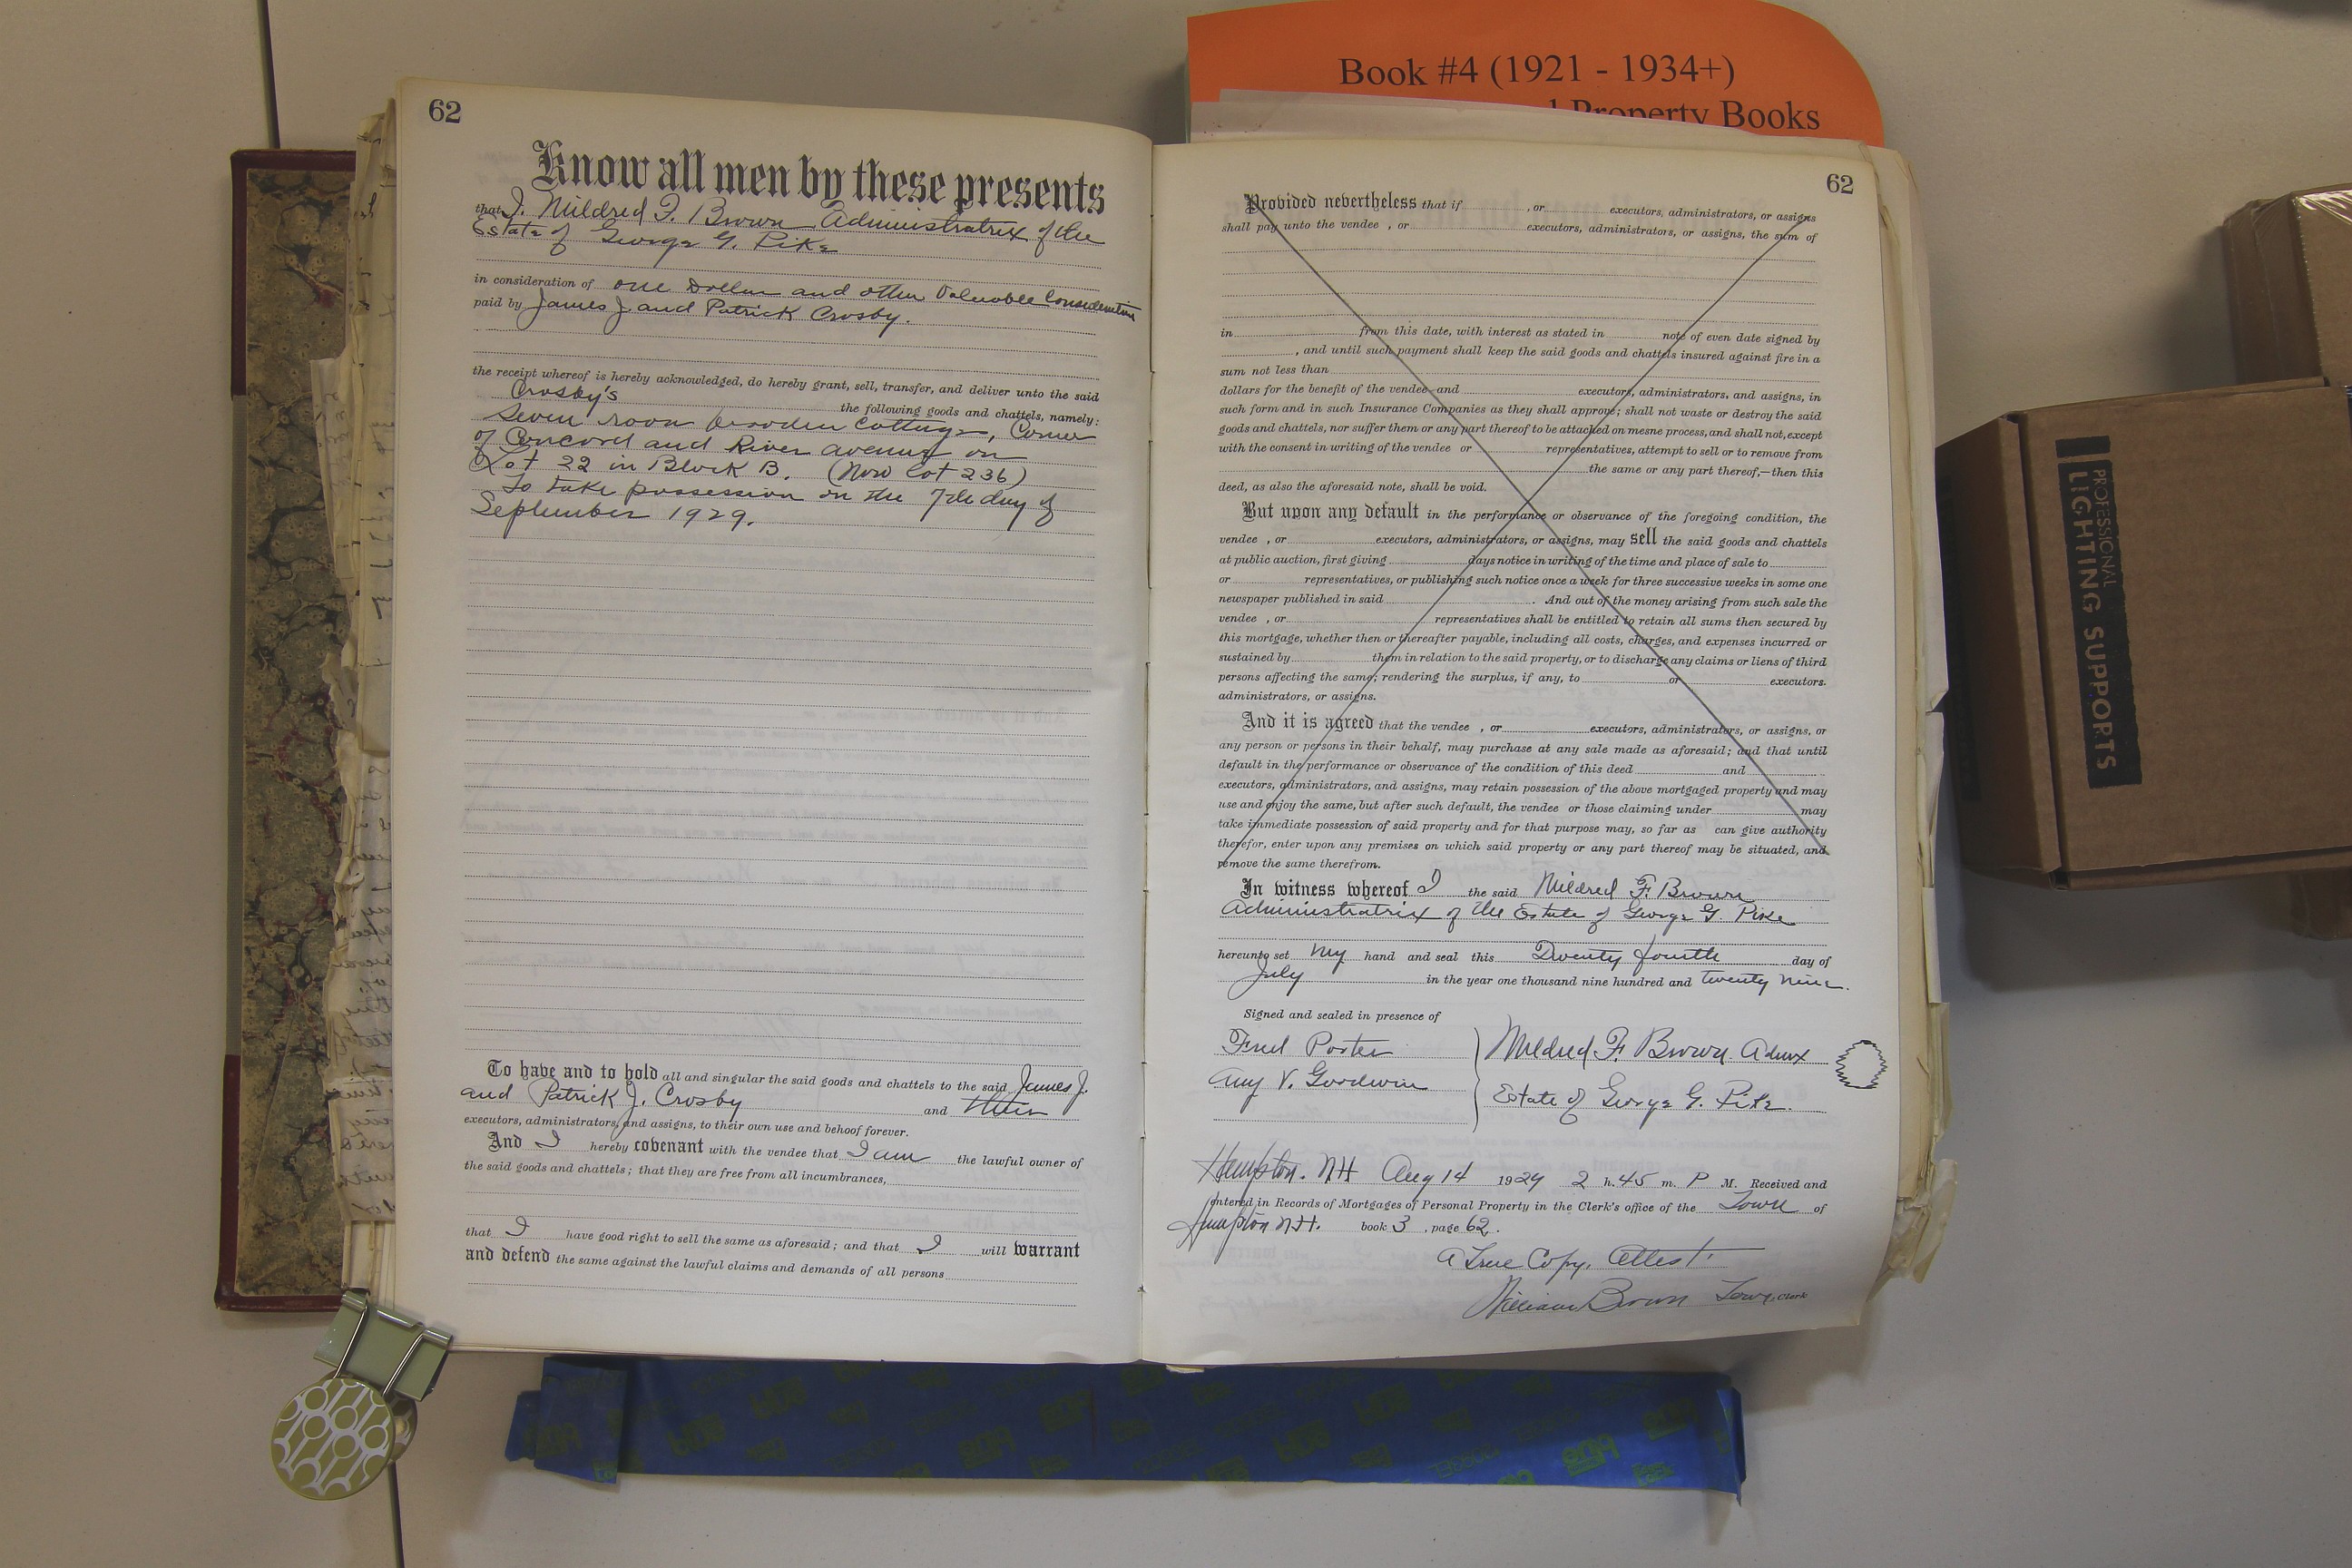 Book #4 (1921 - 1934+)
Property Books
62
Know all men by these presents
that I, Mildred F. Brown Administratrix of the
Estate of George G. Pike
in consideration of one Dollar and other Valuable Consideration
paid by James J and Patrick Crosby.
the receipt whereof is hereby acknowledged, do hereby grant, sell, transfer, and deliver unto the said
Crosby's the following goods and chattels, namely:
Seven room wooden Cottage, Corner
of Concord and River avenue on
Lot 22 in Block B. (Now Lot 236)
To take possession on the 7th day of
September 1929.
To have and to hold all and singular the said goods and chattels to the said James J.
and Patrick J. Crosby and their
executors, administrators, and assigns, to their own use and behoof forever.
And I hereby covenant with the vendee that I am the lawful owner of
the said goods and chattels; that they are free from all incumbrances,
that I have good right to sell the same as aforesaid; and that I will warrant
and defend the same against the lawful claims and demands of all persons
62
Provided nevertheless that if , or executors, administrators, or assigns
shall pay unto the vendee , or executors, administrators, or assigns, the sum of
in from this date, with interest as stated in note of even date signed by
, and until such payment shall keep the said goods and chattels insured against fire in a
sum not less than
dollars for the benefit of the vendee and executors, administrators, and assigns, in
such form and in such Insurance Companies as they shall approve; shall not waste or destroy the said
goods and chattels, nor suffer them or any part thereof to be attached on mesne process, and shall not, except
with the consent in writing of the vendee or representatives, attempt to sell or to remove from
the same or any part thereof,—then this
deed, as also the aforesaid note, shall be void.
But upon any default in the performance or observance of the foregoing condition, the
vendee , or executors, administrators, or assigns, may sell the said goods and chattels
at public auction, first giving days notice in writing of the time and place of sale to
or representatives, or publishing such notice once a week for three successive weeks in some one
newspaper published in said . And out of the money arising from such sale the
vendee , or representatives shall be entitled to retain all sums then secured by
this mortgage, whether then or thereafter payable, including all costs, charges, and expenses incurred or
sustained by them in relation to the said property, or to discharge any claims or liens of third
persons affecting the same; rendering the surplus, if any, to or executors.
administrators, or assigns.
And it is agreed that the vendee , or executors, administrators, or assigns, or
any person or persons in their behalf, may purchase at any sale made as aforesaid; and that until
default in the performance or observance of the condition of this deed and
executors, administrators, and assigns, may retain possession of the above mortgaged property and may
use and enjoy the same, but after such default, the vendee or those claiming under may
take immediate possession of said property and for that purpose may, so far as can give authority
therefor, enter upon any premises on which said property or any part thereof may be situated, and
remove the same therefrom.
In witness whereof I the said Mildred F. Brown
Administratrix of the Estate of George G. Pike
hereunto set my hand and seal this Twenty fourth day of
July in the year one thousand nine hundred and twenty nine.
Signed and sealed in presence of
Fred Porter
Mildred F. Brown Admx
Amy V. Goodwin
Estate of George G. Pike.
Hampton. NH Aug 14 1929 2 h. 45 m. P M. Received and
entered in Records of Mortgages of Personal Property in the Clerk's office of the Town of
Hampton N.H. book 3 , page 62.
A True Copy. Attest:
William Brown Town Clerk
PROFESSIONAL
LIGHTING SUPPORTS